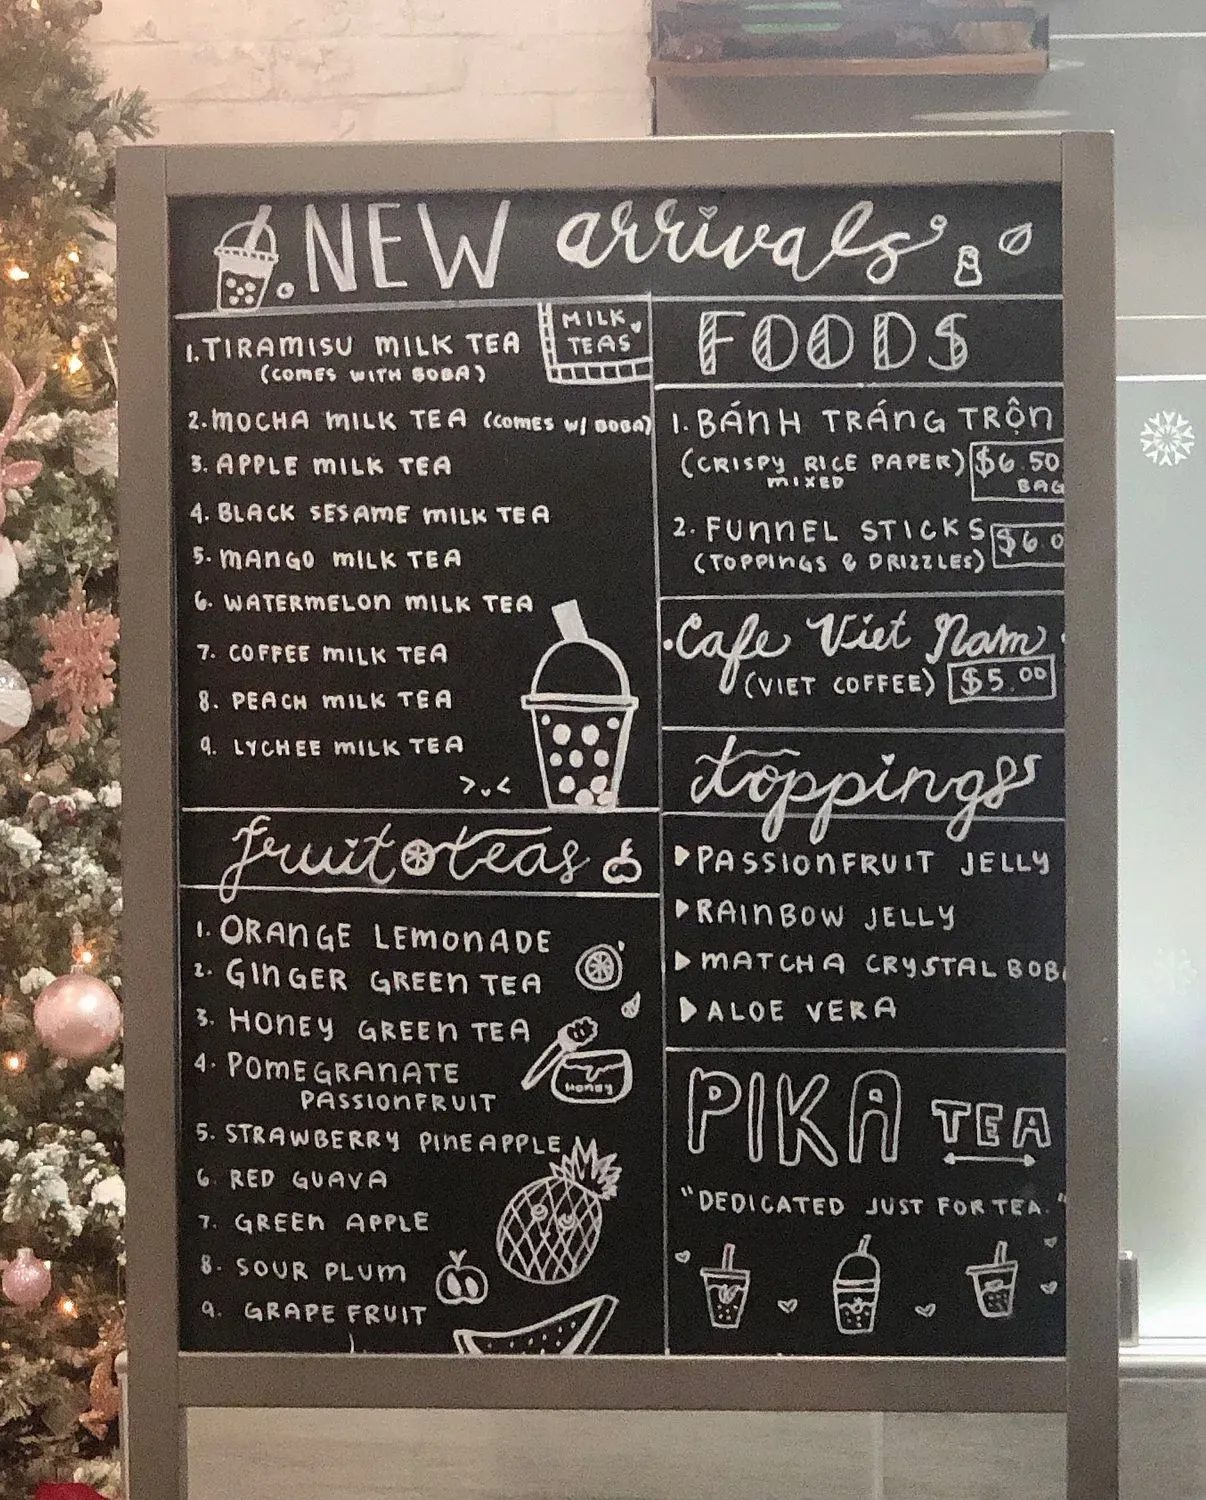 NEW arrivals
MILK
TEAS
1. TIRAMISU MILK TEA
(COMES WITH BOBA)
2. MOCHA MILK TEA (COMES W/ BOBA)
3. APPLE MILK TEA
4. BLACK SESAME MILK TEA
5. MANGO MILK TEA
6. WATERMELON MILK TEA
7. COFFEE MILK TEA
8. PEACH MILK TEA
9. LYCHEE MILK TEA
>.<
fruit teas
1. ORANGE LEMONADE
2. GINGER GREEN TEA
3. HONEY GREEN TEA
4. POMEGRANATE
PASSIONFRUIT
HONEY
5. STRAWBERRY PINEAPPLE
6. RED GUAVA
7. GREEN APPLE
8. SOUR PLUM
9. GRAPE FRUIT
FOODS
1. BÁNH TRÁNG TRỘN
(CRISPY RICE PAPER) $6.50
MIXED BAG
2. FUNNEL STICKS $6.0
(TOPPINGS & DRIZZLES)
Cafe Viet Nam
(VIET COFFEE) $5.00
toppings
PASSIONFRUIT JELLY
RAINBOW JELLY
MATCHA CRYSTAL BOB
ALOE VERA
PIKA TEA
"DEDICATED JUST FOR TEA."